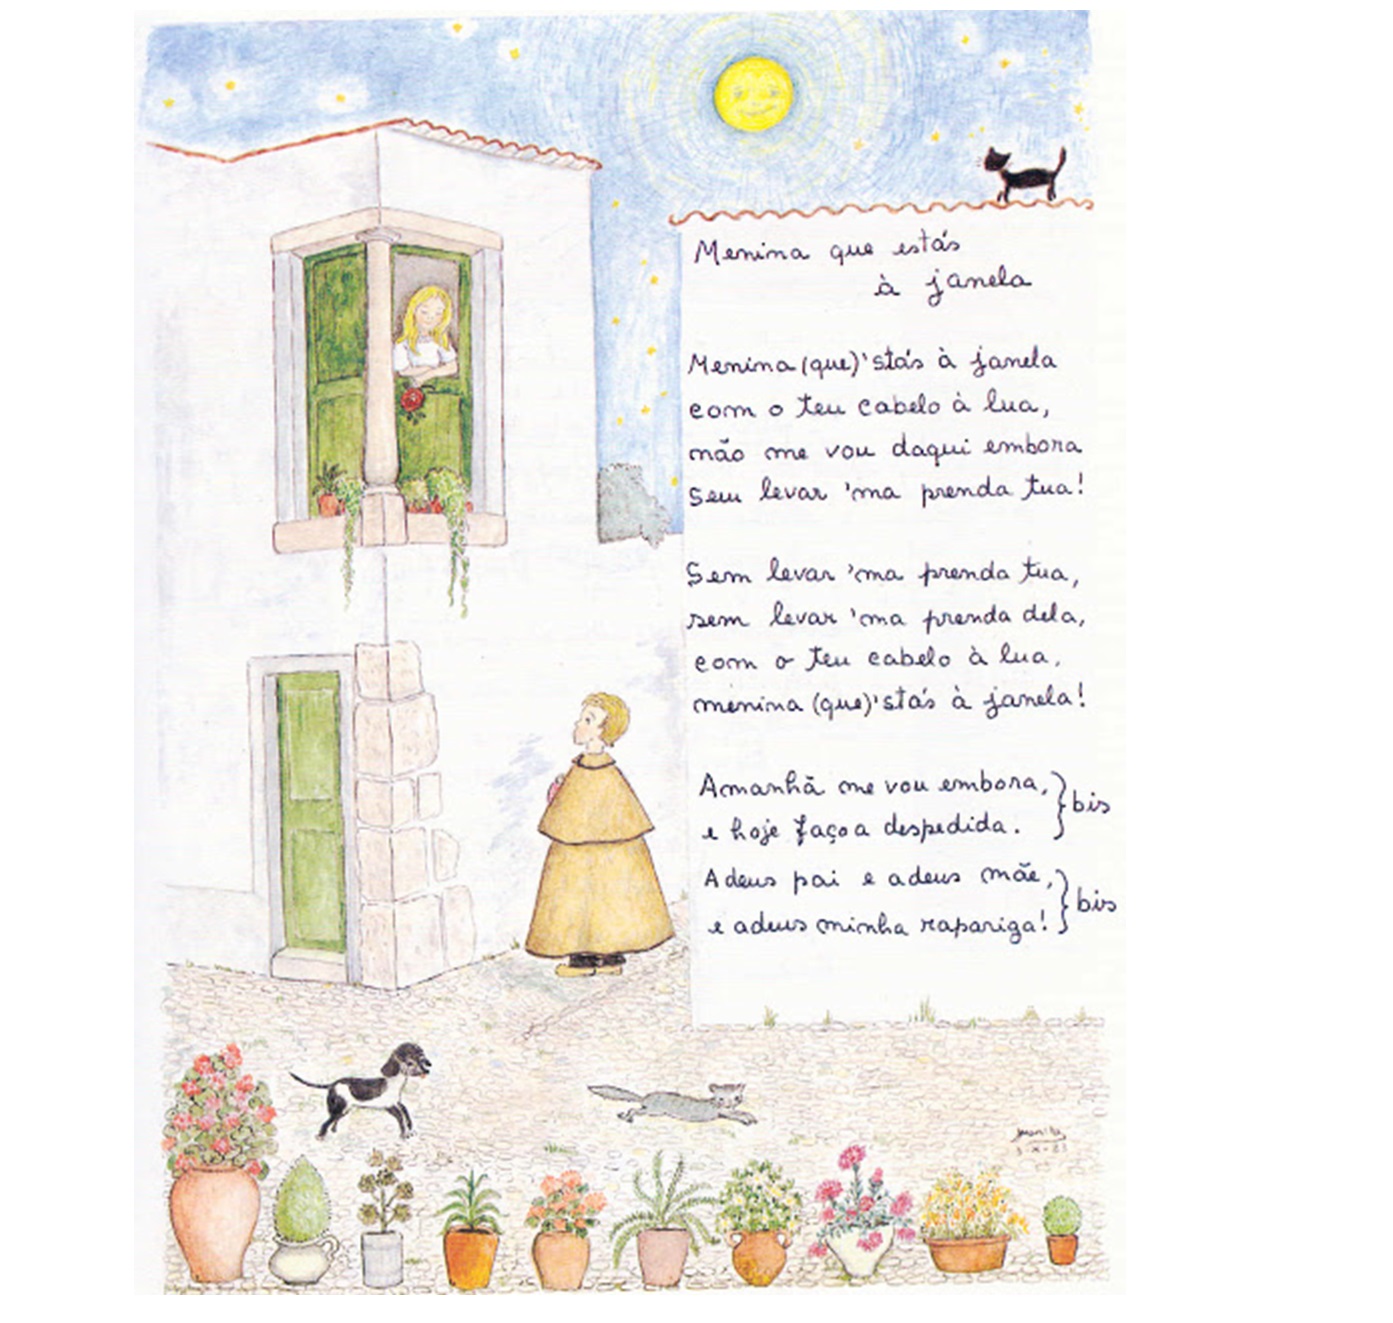 Menina que estás
à janela
Menina (que)'stás à janela
com o teu cabelo à lua,
não me vou daqui embora
sem levar 'ma prenda tua!
Sem levar 'ma prenda tua,
sem levar 'ma prenda dela,
com o teu cabelo à lua,
menina (que)'stás à janela!
Amanhã me vou embora, } bis
e hoje faço a despedida.
Adeus pai e adeus mãe, } bis
e adeus minha rapariga!